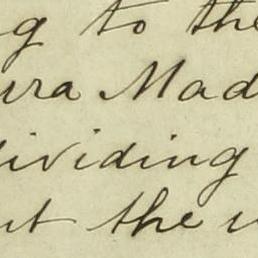 g to the
ura Mad
dividing
ut the